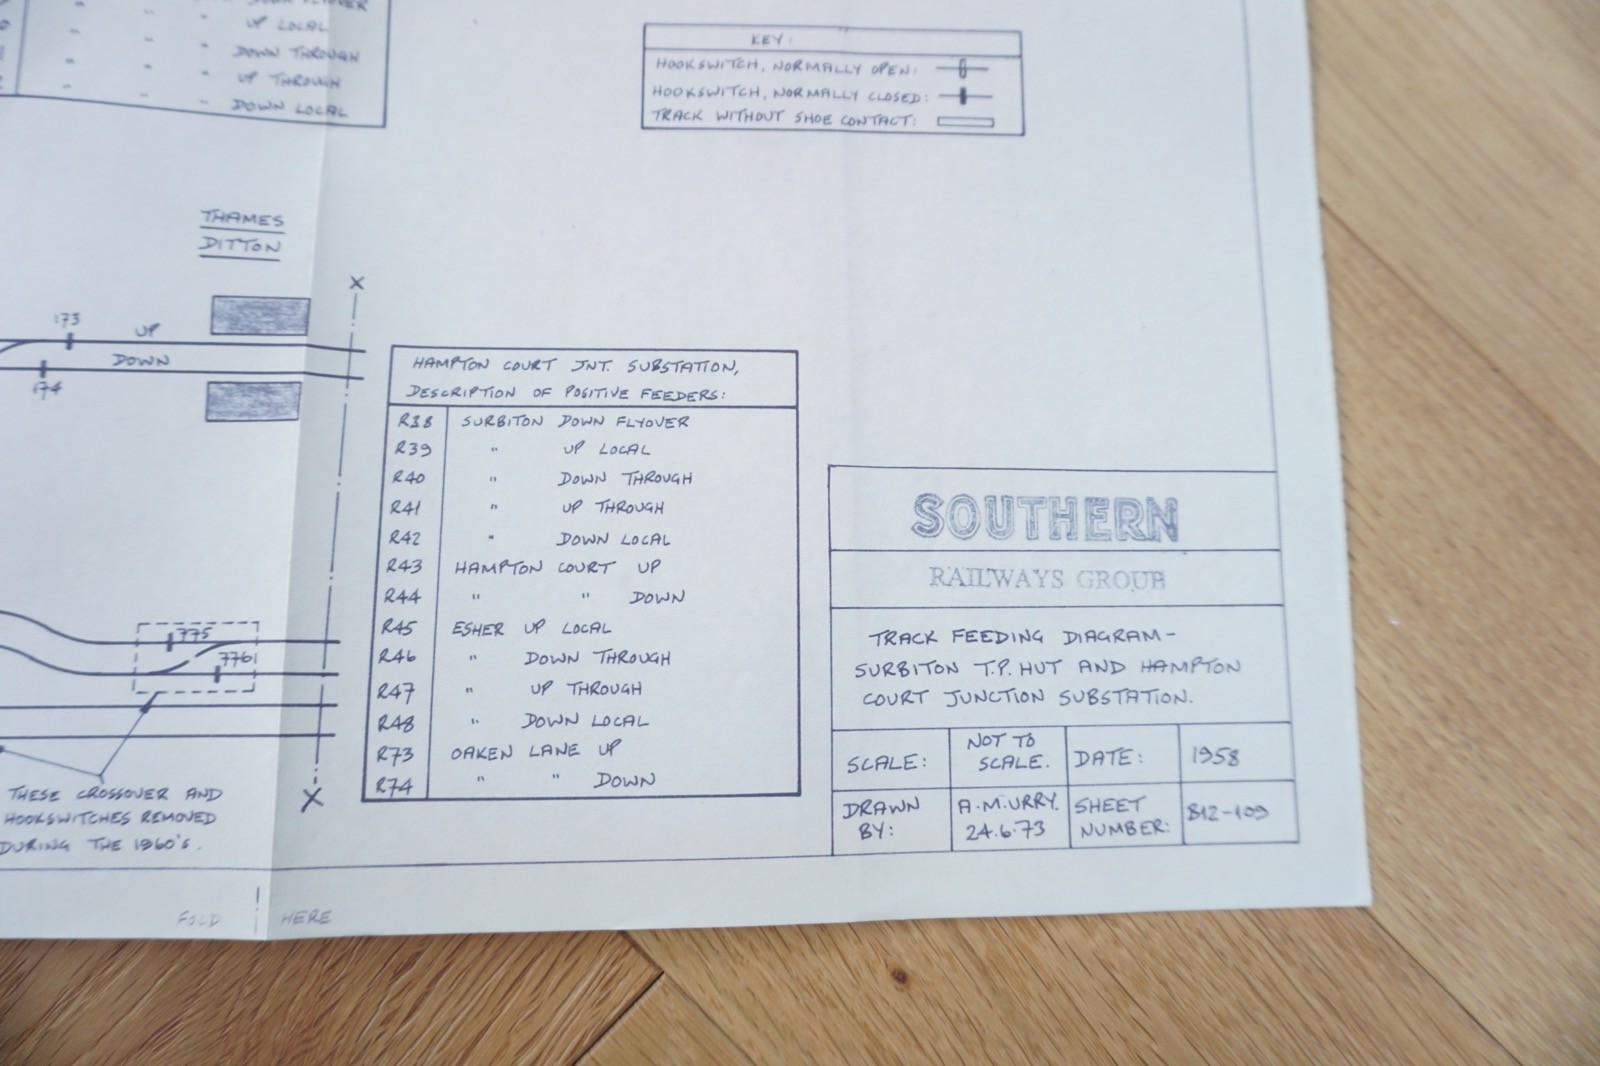 UP LOCAL
" " " DOWN THROUGH
" " " UP THROUGH
" " " DOWN LOCAL
KEY:
HOOKSWITCH, NORMALLY OPEN:
HOOKSWITCH, NORMALLY CLOSED:
TRACK WITHOUT SHOE CONTACT:
THAMES
DITTON
X
173
UP
DOWN
174
HAMPTON COURT JNT. SUBSTATION,
DESCRIPTION OF POSITIVE FEEDERS:
R38 SURBITON DOWN FLYOVER
R39 " UP LOCAL
R40 " DOWN THROUGH
R41 " UP THROUGH
R42 " DOWN LOCAL
R43 HAMPTON COURT UP
R44 " " DOWN
R45 ESHER UP LOCAL
R46 " DOWN THROUGH
R47 " UP THROUGH
R48 " DOWN LOCAL
R73 OAKEN LANE UP
R74 " " DOWN
775
776
X
THESE CROSSOVER AND
HOOKSWITCHES REMOVED
DURING THE 1960'S.
FOLD HERE
SOUTHERN
RAILWAYS GROUP
TRACK FEEDING DIAGRAM-
SURBITON T.P. HUT AND HAMPTON
COURT JUNCTION SUBSTATION.
SCALE: NOT TO SCALE. DATE: 1958
DRAWN BY: A.M.URRY. 24.6.73 SHEET NUMBER: B12-109